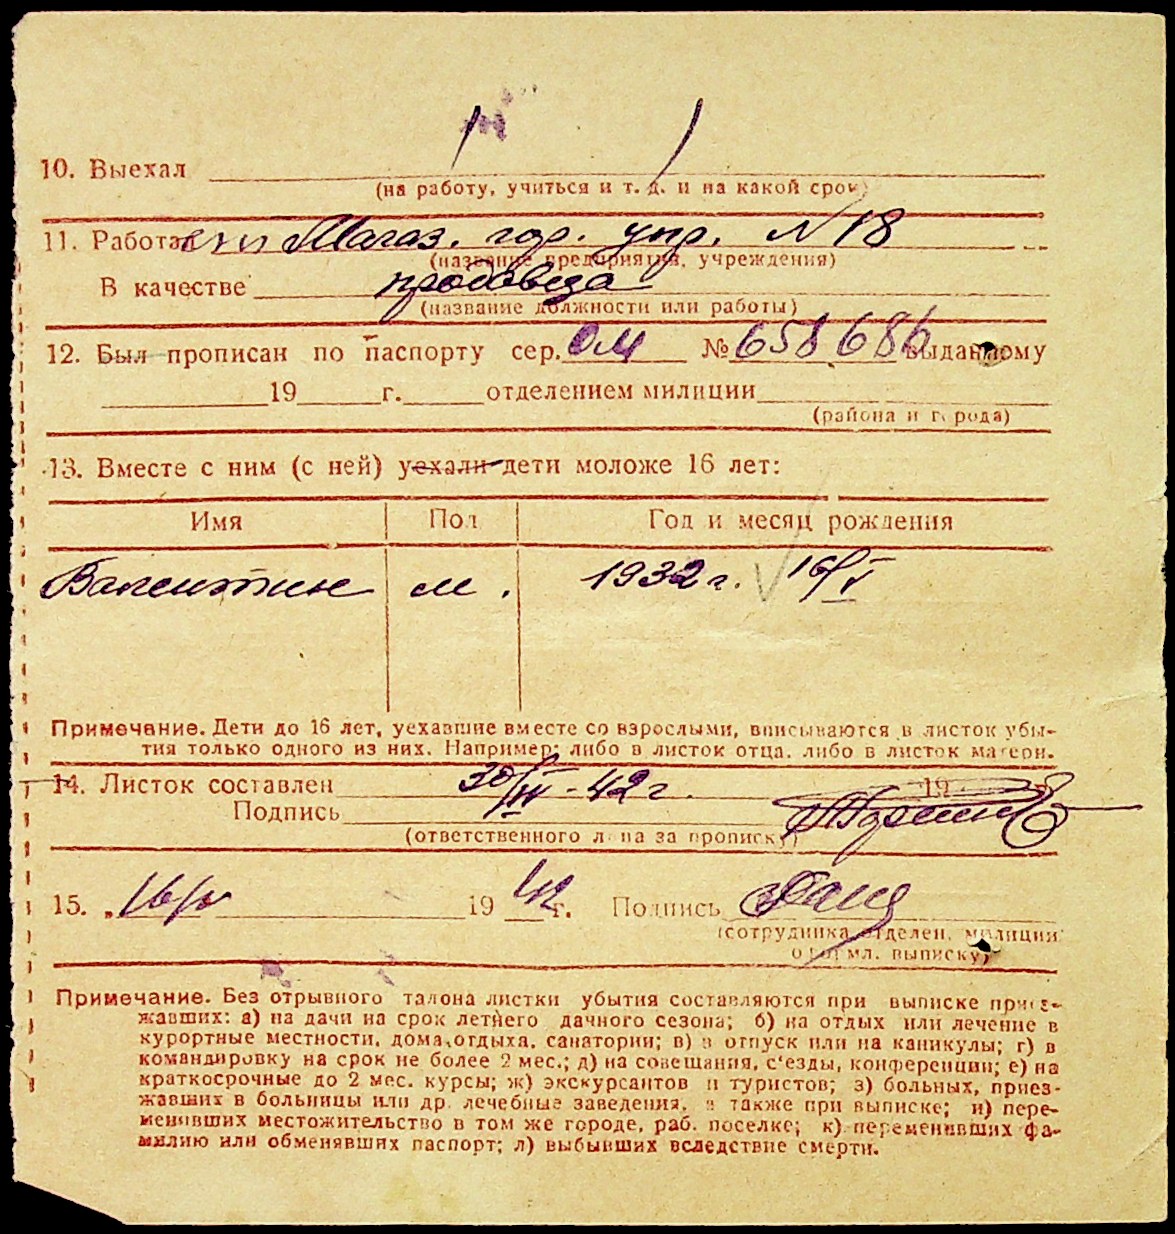 10. Выехал
(на работу, учиться и т. д. и на какой срок)
11. Работа Магаз. гор. упр. N 18
(название предприятия, учреждения)
В качестве продавца
(название должности или работы)
12. Был прописан по паспорту сер. ОМ № 658686 выданному
19 г. отделением милиции
(района и города)
13. Вместе с ним (с ней) уехали дети моложе 16 лет:
Имя Пол Год и месяц рождения
Валентин м. 1932 г. 16/V
Примечание. Дети до 16 лет, уехавшие вместе со взрослыми, вписываются в листок убы-
тия только одного из них. Например: либо в листок отца, либо в листок матери.
14. Листок составлен 30/III - 42 г. 19
Подпись
(ответственного лица за прописку)
15. „16/IV 19 42 г. Подпись
(сотрудника отделен. милиции
оформл. выписку)
Примечание. Без отрывного талона листки убытия составляются при выписке приез-
жавших: а) на дачи на срок летнего дачного сезона; б) на отдых или лечение в
курортные местности, дома отдыха, санатории; в) в отпуск или на каникулы; г) в
командировку на срок не более 2 мес.; д) на совещания, с'езды, конференции; е) на
краткосрочные до 2 мес. курсы; ж) экскурсантов и туристов; з) больных, приез-
жавших в больницы или др. лечебные заведения, а также при выписке; и) пере-
менивших местожительство в том же городе, раб. поселке; к) переменивших фа-
милию или обменявших паспорт; л) выбывших вследствие смерти.